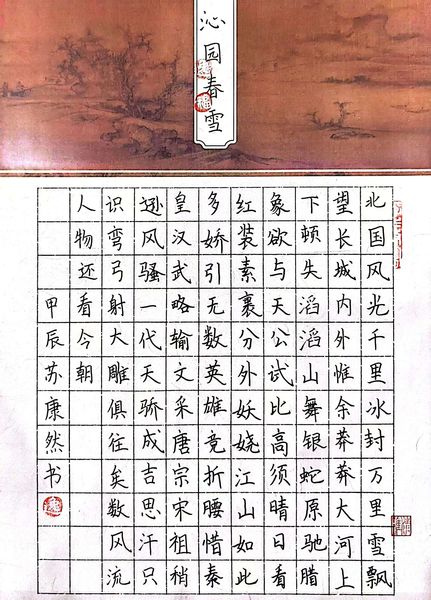 沁园春雪
北国风光千里冰封万里雪飘
望长城内外惟余莽莽大河上
下顿失滔滔山舞银蛇原驰腊
象欲与天公试比高须晴日看
红装素裹分外妖娆江山如此
多娇引无数英雄竞折腰惜秦
皇汉武略输文采唐宗宋祖稍
逊风骚一代天骄成吉思汗只
识弯弓射大雕俱往矣数风流
人物还看今朝
甲辰苏康然书